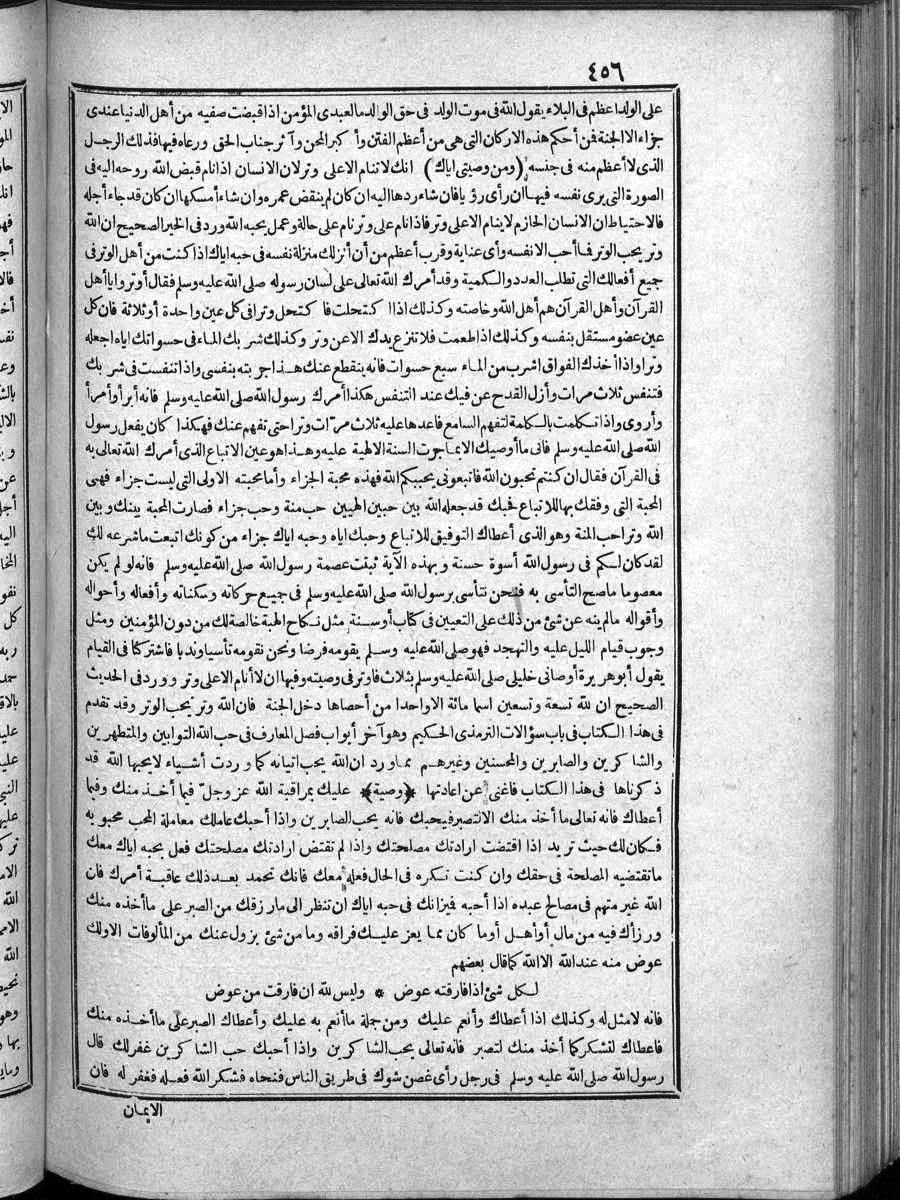 ٤٥٦
على الولد اعظم فى البلاء يقول الله فى موت الولد فى حق الوالد ما لعبدى المؤمن اذا قبضت صفيه من أهل الدنيا عندى
جزاء الا الجنة فمن أحكم هذه الاركان التى هى من أعظم الفتن وأكبر المحن وآثر جناب الحق ورعاه فيها فذلك الرجل
الذى لا أعظم منه فى جنسه (ومن وصيتى اياك) انك لا تنام الا على وتر لان الانسان اذا نام قبض الله روحه اليه فى
الصورة التى يرى نفسه فيها ان رأى رؤيا فان شاء ردها اليه ان كان لم ينقض عمره وان شاء أمسكها ان كان قد جاء أجله
فالاحتياط ان الانسان الحازم لا ينام الا على وتر فاذا نام على وتر نام على حالة وعمل يحبه الله ورد فى الخبر الصحيح ان الله
وتر يحب الوتر فما أحب الا نفسه وأى عناية وقرب أعظم من أن أنزلك منزلة نفسه فى حبه اياك اذا كنت من أهل الوتر فى
جميع أفعالك التى تطلب العدد والكمية وقد أمرك الله تعالى على لسان رسوله صلى الله عليه وسلم فقال أوتروا يا أهل
القرآن وأهل القرآن هم أهل الله وخاصته وكذلك اذا اكتحلت فاكتحل وترا فى كل عين واحدة أو ثلاثة فان كل
عين عضو مستقل بنفسه وكذلك اذا طعمت فلا تنزع يدك الا عن وتر وكذلك شربك الماء فى حسواتك اياه اجعله
وترا واذا أخذك الفواق اشرب من الماء سبع حسوات فانه ينقطع عنك هذا جربته بنفسى واذا تنفست فى شربك
فتنفس ثلاث مرات وأزل القدح عن فيك عند التنفس هكذا أمرك رسول الله صلى الله عليه وسلم فانه أبرأ وأمرأ
وأروى واذا تكلمت بالكلمة لتفهم السامع فاعدها عليه ثلاث مرّات وترا حتى تفهم عنك فهكذا كان يفعل رسول
الله صلى الله عليه وسلم فانى ما أوصيك الا بما جرت السنة الالهية عليه وهذا هو عين الاتباع الذى أمرك الله تعالى به
فى القرآن فقال ان كنتم تحبون الله فاتبعونى يحببكم الله فهذه محبة الجزاء وأما محبته الاولى التى ليست جزاء فهى
المحبة التى وفقك بها للاتباع فحبك قد جعله الله بين حبين الهيين حب منة وحب جزاء فصارت المحبة بينك وبين
الله وترا حب المنة وهو الذى أعطاك التوفيق للاتباع وحبك اياه وحبه اياك جزاء من كونك اتبعت ما شرعه لك
لقد كان لكم فى رسول الله أسوة حسنة وبهذه الآية ثبتت عصمة رسول الله صلى الله عليه وسلم فانه لو لم يكن
معصوما ما صح التأسى به فنحن نتأسى برسول الله صلى الله عليه وسلم فى جميع حركاته وسكناته وأفعاله وأحواله
وأقواله ما لم ينه عن شئ من ذلك على التعيين فى كتاب أو سنة مثل نكاح الهبة خالصة لك من دون المؤمنين ومثل
وجوب قيام الليل عليه والتهجد فهو صلى الله عليه وسلم يقومه فرضا ونحن نقومه تأسيا وندبا فاشتركنا فى القيام
يقول أبو هريرة أوصانى خليلى صلى الله عليه وسلم بثلاث فاوتر فى وصيته وفيها ان لا أنام الا على وتر وورد فى الحديث
الصحيح ان لله تسعة وتسعين اسما مائة الا واحدا من أحصاها دخل الجنة فان الله وتر يحب الوتر وقد تقدم
فى هذا الكتاب فى باب سؤالات الترمذى الحكيم وهو آخر أبواب فصل المعارف فى حب الله التوابين والمتطهرين
والشاكرين والصابرين والمحسنين وغيرهم مما ورد ان الله يحب اتيانه كما وردت أشياء لا يحبها الله قد
ذكرناها فى هذا الكتاب فاغنى عن اعادتها ﴿وصية﴾ عليك بمراقبة الله عز وجلّ فيما أخذ منك وفيما
أعطاك فانه تعالى ما أخذ منك الا لتصبر فيحبك فانه يحب الصابرين واذا أحبك عاملك معاملة المحب محبوبه
فكان لك حيث تريد اذا اقتضت ارادتك مصلحتك واذا لم تقتض ارادتك مصلحتك فعل بحبه اياك معك
ما تقتضيه المصلحة فى حقك وان كنت تكره فى الحال فعله معك فانك تحمد بعد ذلك عاقبة أمرك فان
الله غير متهم فى مصالح عبده اذا أحبه فميزانك فى حبه اياك ان تنظر الى ما رزقك من الصبر على ما أخذه منك
ورزأك فيه من مال أو أهل أو ما كان مما يعز عليك فراقه وما من شئ يزول عنك من المألوفات الا ولك
عوض منه عند الله الا الله كما قال بعضهم
لكل شئ اذا فارقته عوض * وليس لله ان فارقت من عوض
فانه لا مثل له وكذلك اذا أعطاك وأنعم عليك ومن جملة ما أنعم به عليك وأعطاك الصبر على ما أخذه منك
فاعطاك لتشكر كما أخذ منك لتصبر فانه تعالى يحب الشاكرين واذا أحبك حب الشاكرين غفر لك قال
رسول الله صلى الله عليه وسلم فى رجل رأى غصن شوك فى طريق الناس فنحاه فشكر الله فعله فغفر له فان
الايمان